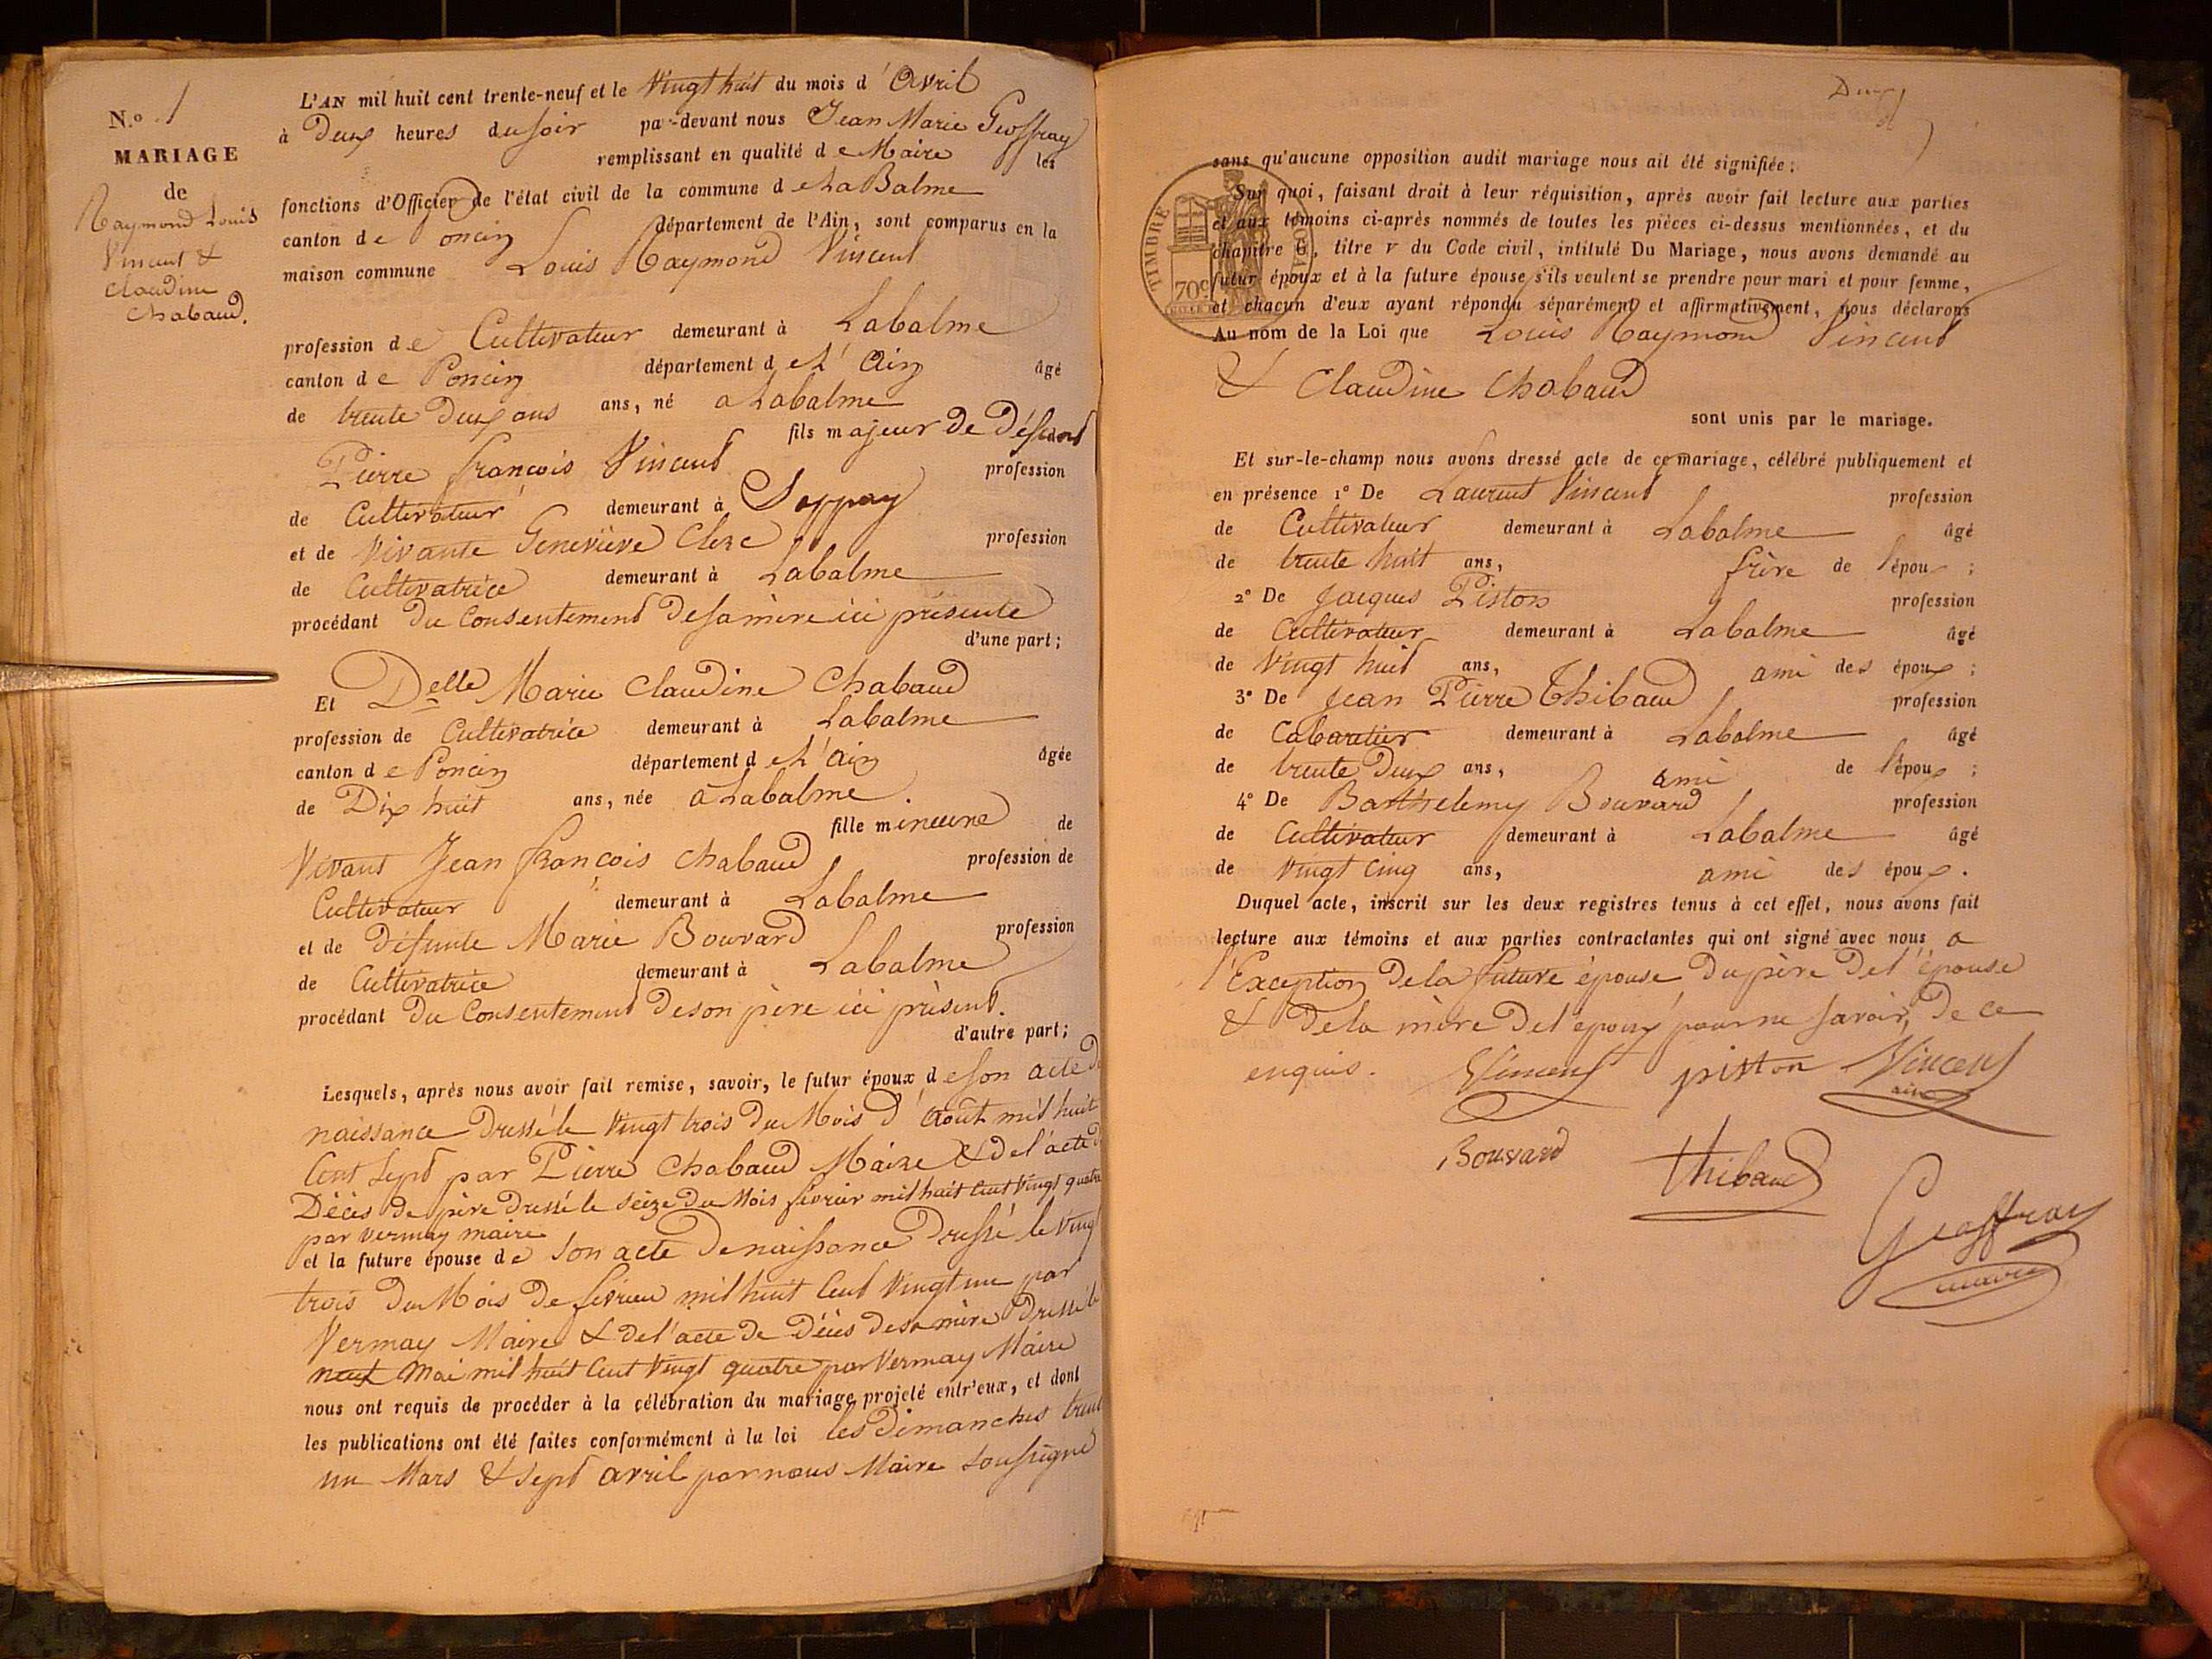 N.o 1
MARIAGE
de
Raymond Louis
Vincent &
Claudine
Chabaud.
L'AN mil huit cent trente-neuf et le Vingt huit du mois d'Avril
à Deux heures du soir par-devant nous Jean Marie Geoffray
remplissant en qualité de Maire les
fonctions d'Officier de l'état civil de la commune de La Balme
canton de Poncin département de l'Ain, sont comparus en la
maison commune Louis Raymond Vincent
profession de Cultivateur demeurant à Labalme
canton de Poncin département de L'Ain âgé
de trente Deux ans ans, né a Labalme
fils majeur De Défunt
Pierre françois Vincent profession
de Cultivateur demeurant à
et de Vivante Geneviève Clerc profession
de Cultivatrice demeurant à Labalme
procédant Du Consentement De sa mère ici présente
d'une part;
Et Delle Marie Claudine Chabaud
profession de Cultivatrice demeurant à Labalme
canton de Poncin département de L'Ain âgée
de Dix huit ans, née à Labalme.
fille mineure de
Vivant Jean françois Chabaud profession de
Cultivateur demeurant à Labalme
et de Défunte Marie Bouvard profession
de Cultivatrice demeurant à Labalme
procédant Du Consentement De son père ici présent.
d'autre part;
Lesquels, après nous avoir fait remise, savoir, le futur époux de son acte de
naissance Dressé le Vingt trois Du Mois D'Août mil huit
Cent Sept par Pierre Chabaud Maire & de l'acte de
Décès de père Dressé le Seize Du Mois février mil huit Cent Vingt quatre
par Vermay maire
et la future épouse de Son acte De naissance Dressé le Vingt
trois Du Mois De février mil huit Cent Vingt un par
Vermay Maire & de l'acte de Décès de sa mère Dressé le
neuf Mai mil huit Cent Vingt quatre par Vermay Maire
nous ont requis de procéder à la célébration du mariage projeté entr'eux, et dont
les publications ont été faites conformément à la loi les Dimanches trente
un Mars & Sept avril par nous Maire Soussigné
Deux
sans qu'aucune opposition audit mariage nous ait été signifiée;
TIMBRE ROYAL
70c
Sur quoi, faisant droit à leur réquisition, après avoir fait lecture aux parties
et aux témoins ci-après nommés de toutes les pièces ci-dessus mentionnées, et du
chapitre 6, titre v du Code civil, intitulé Du Mariage, nous avons demandé au
futur époux et à la future épouse s'ils veulent se prendre pour mari et pour femme,
et chacun d'eux ayant répondu séparément et affirmativement, nous déclarons
Au nom de la Loi que Louis Raymond Vincent
& Claudine Chabaud
sont unis par le mariage.
Et sur-le-champ nous avons dressé acte de ce mariage, célébré publiquement et
en présence 1° De Laurent Vincent profession
de Cultivateur demeurant à Labalme âgé
de trente huit ans, frère de l'époux;
2° De Jacques Piston profession
de Cultivateur demeurant à Labalme âgé
de Vingt huit ans, ami des époux;
3° De Jean Pierre Thibaud profession
de Cabaretier demeurant à Labalme âgé
de trente Deux ans, ami de l'époux;
4° De Barthelemy Bouvard profession
de Cultivateur demeurant à Labalme âgé
de Vingt Cinq ans, ami des époux.
Duquel acte, inscrit sur les deux registres tenus à cet effet, nous avons fait
lecture aux témoins et aux parties contractantes qui ont signé avec nous a
l'Exception De la future épouse, Du père De l'épouse
& De la mère De l'époux pour ne savoir, De ce
enquis. Vincent piston Vincent
Bouvard
Thibaud
Geoffray
maire